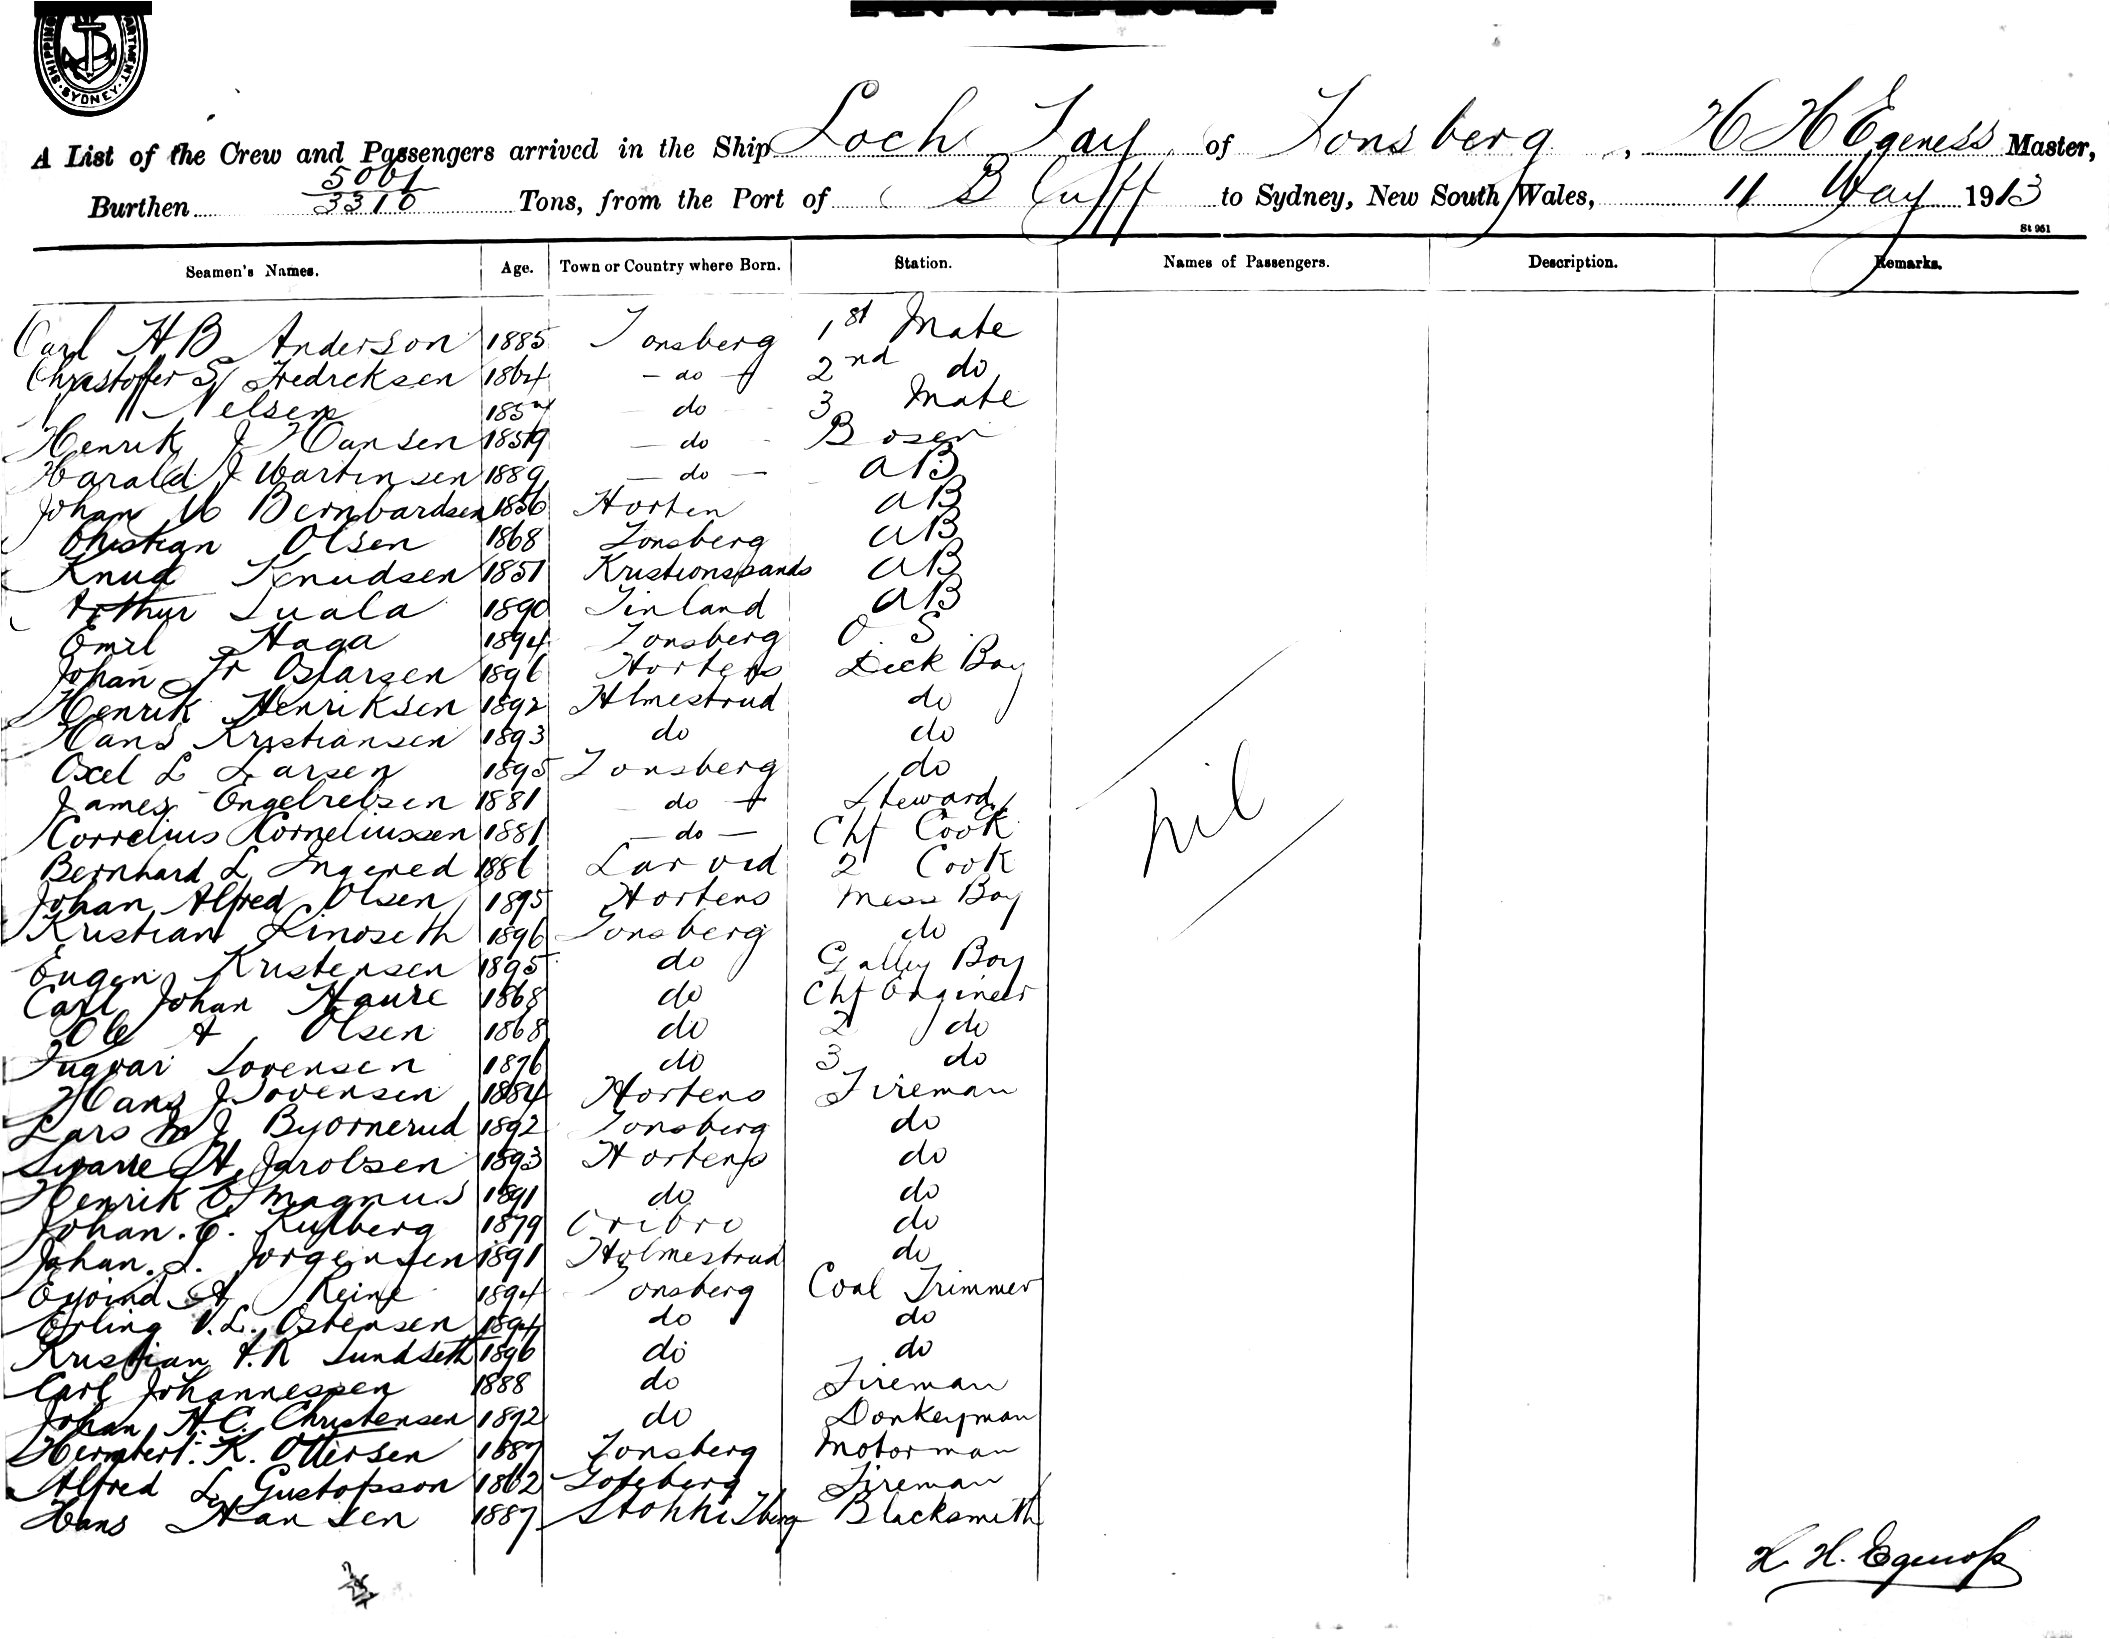 SHIPPING DEPARTMENT SYDNEY
A List of the Crew and Passengers arrived in the Ship Loch Tay of Tonsberg, H H Egeness Master,
Burthen 5061 / 3310 Tons, from the Port of Bluff to Sydney, New South Wales, 11 May 1913
St 951
Seamen's Names. Age. Town or Country where Born. Station. Names of Passengers. Description. Remarks.
Carl H B Anderson 1885 Tonsberg 1st Mate
Christoffer S Fredreksen 1864 - do - 2nd do
Nelsen do 3 Mate
Henrik J Hansen 1859 - do - Bosen
Harald J Martinsen 1889 - do - AB
Johan M Bernbardsen 1856 Horten AB
Christian Olsen 1868 Tonsberg AB
Knud Knudsen 1851 Kristionssands AB
Arthur Luala 1890 Finland AB
Emil Haga 1894 Tonsberg O. S.
Johan Fr Oskarsen 1896 Hortens Deck Boy
Henrik Henriksen 1892 Hlmestrud do
Hans Kristiansen 1893 do do
Oxel L Larsen 1895 Tonsberg do
James Engelrebsen 1881 - do - Steward
Correlius Korneliussen 1881 - do - Chf Cook
Bernhard L Ingered 1886 Larvid 2 Cook
Johan Alfred Olsen 1895 Hortens Mess Boy
Kristian Linoseth 1896 Tonsberg do
Eugen Kristensen 1895 do Galley Boy
Carl Johan Haure 1868 do Chf Engineer
Ole A Olsen 1868 do 2 do
Ingvar Sorensen 1876 do 3 do
Hans J Sorensen 1884 Hortens Fireman
Lars M J Byornerud 1892 Tonsberg do
H Jarobsen 1893 Hortens do
Henrik O Magnus 1891 do do
Johan. C. Rylberg 1879 Oribro do
Johan. L. Jorgensen 1891 Holmestrud do
Eyvind A Reine 1894 Tonsberg Coal Trimmer
Erling V. L. Ostensen 1894 do do
Kristian A. R Lundseth 1896 do do
Carl Johannessen 1888 do Fireman
Johan H. C. Christensen 1892 do Donkeyman
K. Ottersen 1887 Tonsberg Motorman
Alfred L Gustofsson 1862 Goteberg Fireman
Hans Hansen 1887 Blacksmith
nil
H. H. Egenoss